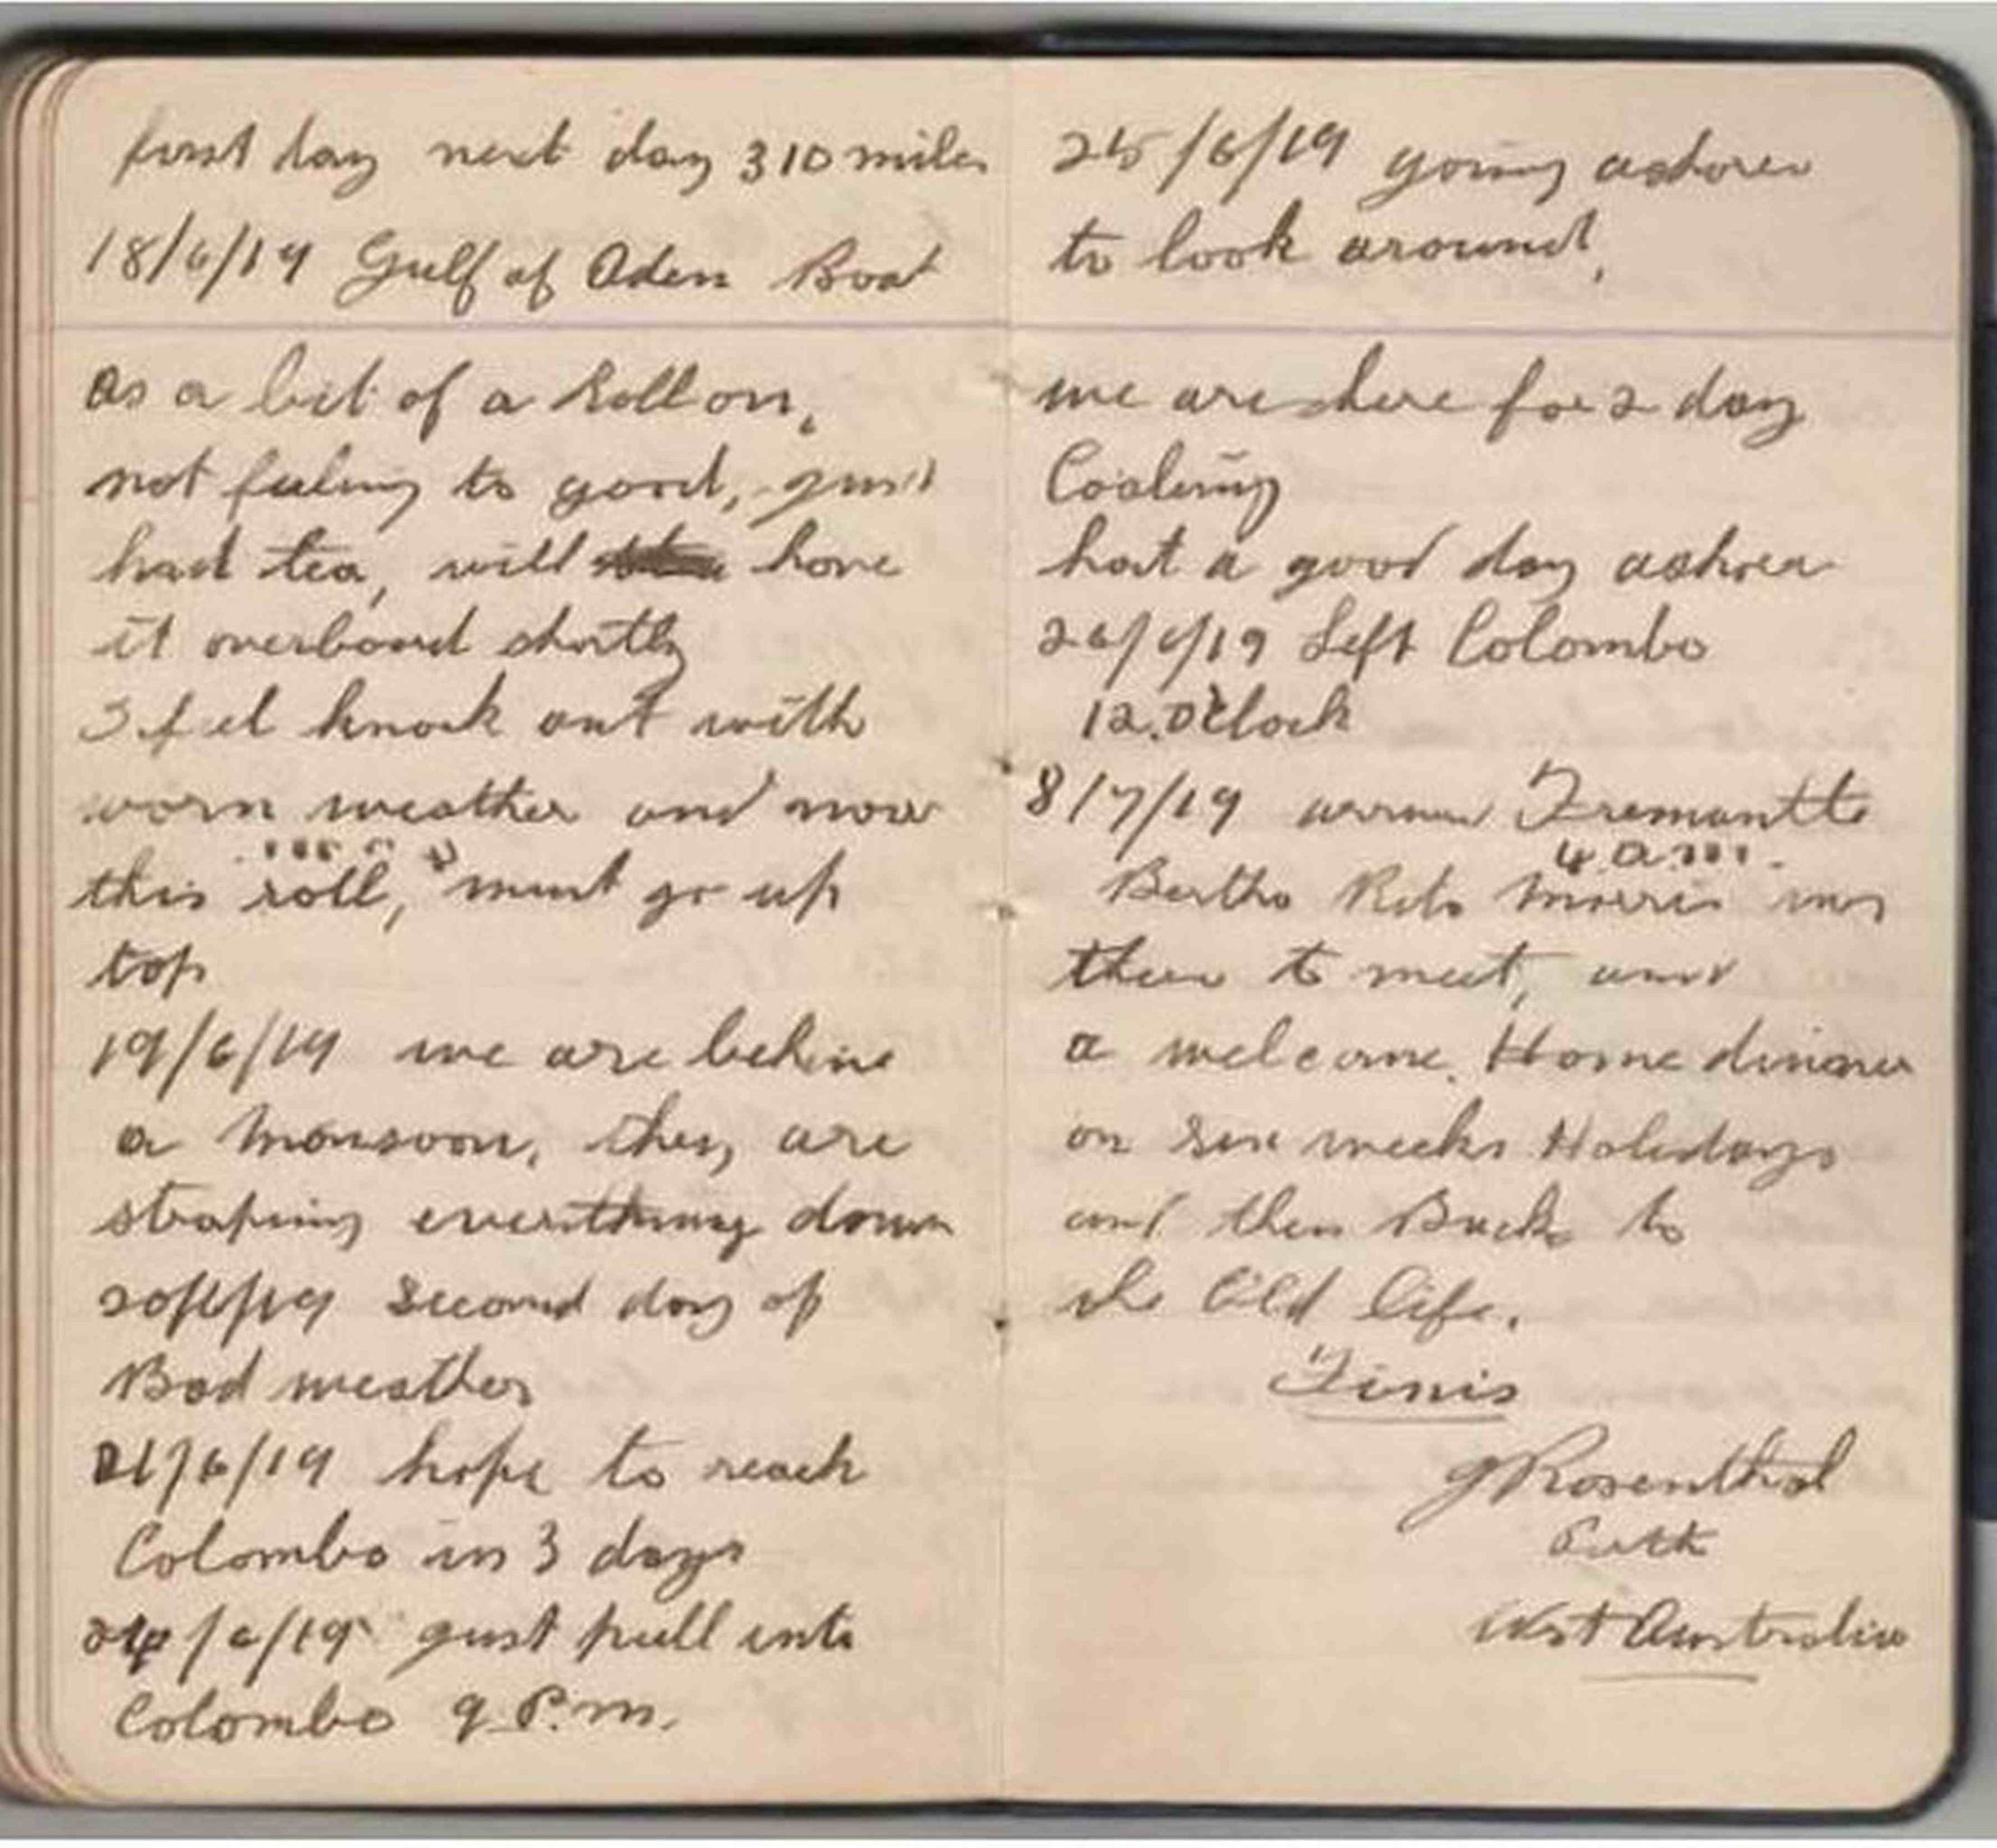 first day next day 310 miles
18/6/19 Gulf of Aden Boat
as a bit of a Roll on,
not feeling to good, just
had tea, will have
it overboard shortly
I feel knock out with
worm weather and now
this roll, must go up
top
19/6/19 we are behine
a monsoon, they are
straping everything down
20/6/19 second day of
Bad weather
21/6/19 hope to reach
Colombo in 3 days
24/6/19 just pull into
Colombo 9 P.m.
25/6/19 going ashore
to look around,
we are here for 2 day
Coaling
had a good day ashore
26/6/19 Left Colombo
12.O'Clock
8/7/19 Fremantle
4.a.m.
Bertha Morris was
there to meet, and
a welcome Home dinner
on six weeks Holidays
and then Back to
the Old life.
Finis
G Rosenthal
Perth
West Australia